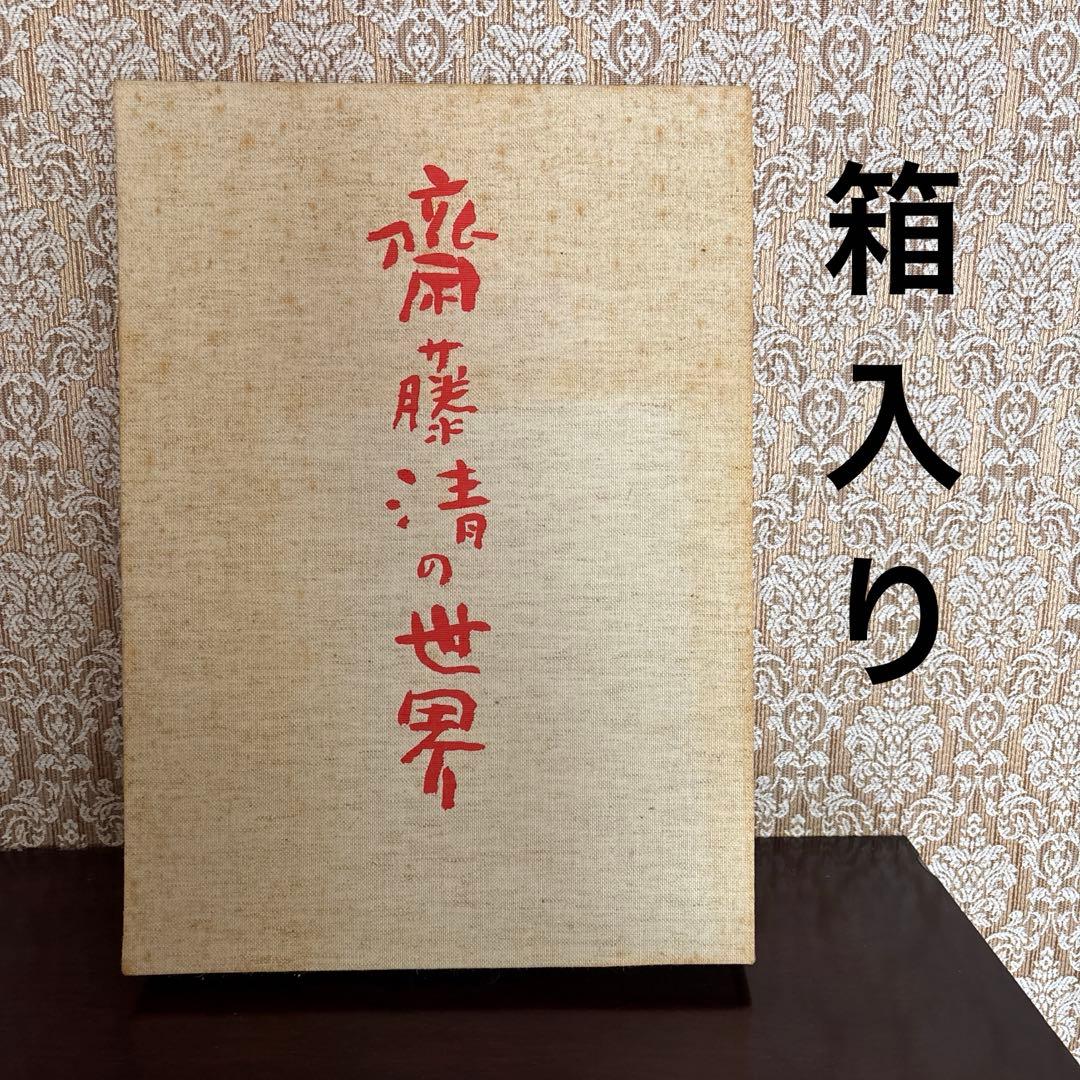 箱入り
齋藤清の世界